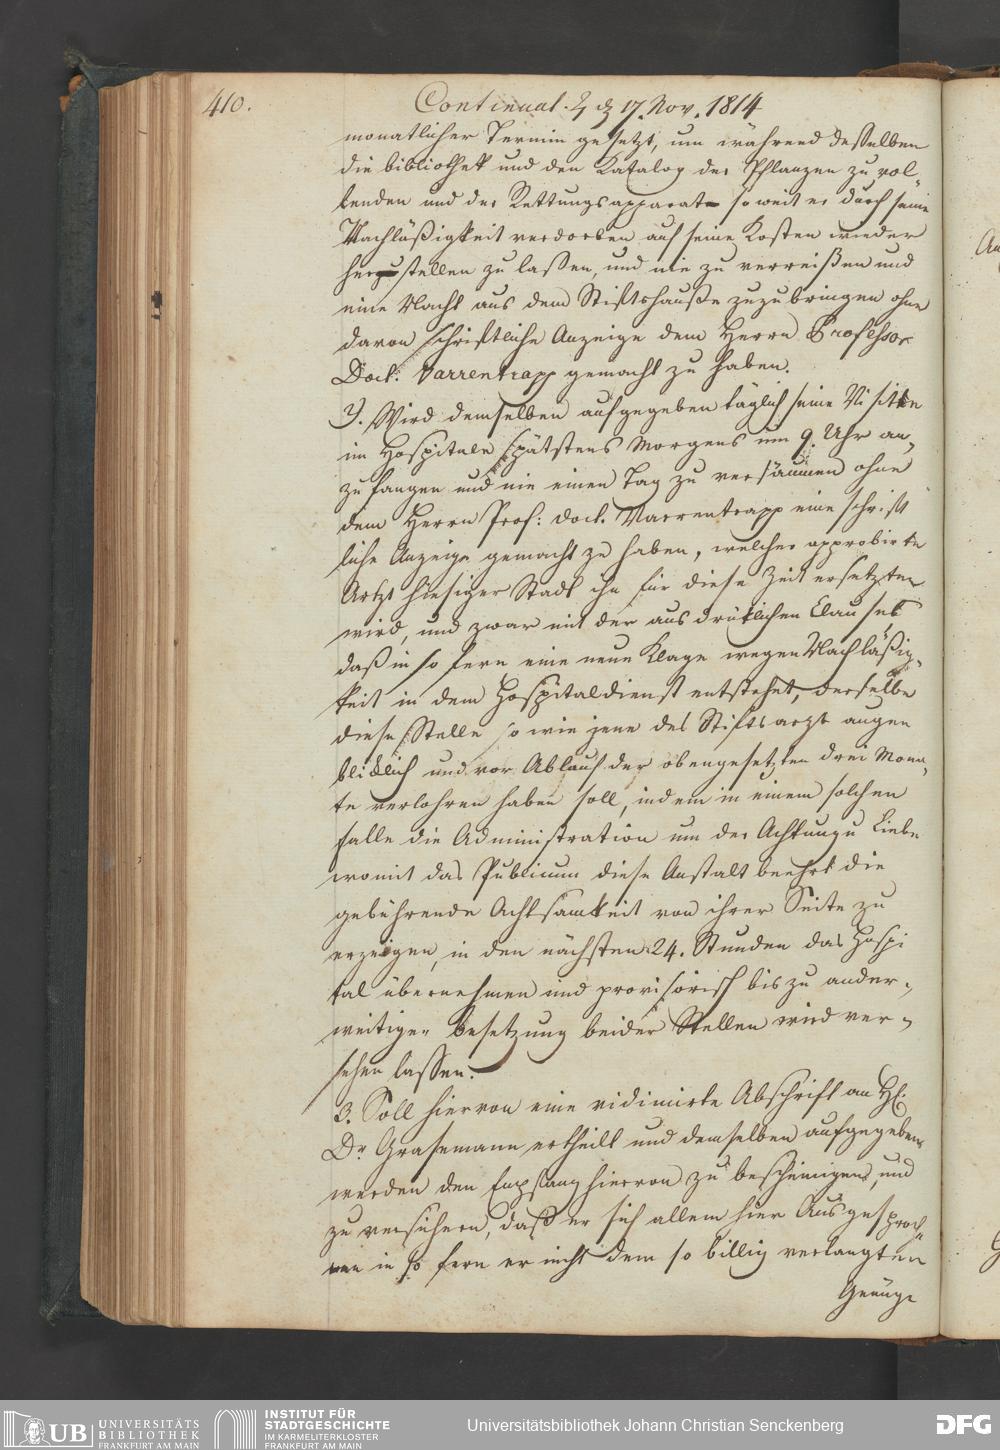 410. Continuat. ♃ d 17. Nov. 1814
monatlicher Termin gesetzt, um während desselben
die bibliothek und den Katalog der Pflanzen zu vol-
lenden und der Rettungsapparat so weit er durch seine
Nachläßigkeit verdorben auf seine Kosten wieder
herzustellen zu lassen, und nie zu verreißen und
eine Nacht aus dem Stiftshauße zuzubringen ohne
davon schriftliche Anzeige dem Herrn Professor
Doct. Varrentrapp gemacht zu haben.
2. Wird demselben aufgegeben täglich seine Visitten
im Hospitale spätstens Morgens um 9. Uhr an-
zufangen und nie einen Tag zu versäumen ohne
dem Herrn Prof: doct. Varrentrapp eine schrift
liche Anzeige gemacht zu haben, welcher approbirte
Artzt hiesiger Stadt ihn für diese Zeit ersetzten
wird, und zwar mit der ausdrüklichen Clausel
daß in so fern eine neue Klage wegen Nachläßig-
keit in dem Hospitaldienst entstehet, derselbe
diese Stelle so wie jene des Stiftsarzt augen
bliklich und vor Ablauf der obengesetzten drei Mona-
te verlohren haben soll, indem in einem solchen
Falle die Administration um der Achtung u Liebe
womit das Publicum diese Anstalt beehrt die
gebührende Achtsamkeit von ihrer Seite zu
erzeigen, in den nächsten 24. Stunden das Hospi
tal übernehmen und provisorisch bis zu ander-
weitiger besetzung beider Stellen wird ver-
sehen lassen.
3. Soll hiervon eine vidimirte Abschrift an H.
Dr. Grasemann ertheilt und demselben aufgegeben
werden den Empfang hiervon zu bescheinigen, und
zu versichern, daß er sich allem hier Ausgesproch-
nen in so fern er nicht dem so billig verlangten
Genüge
UB UNIVERSITÄTS
BIBLIOTHEK
FRANKFURT AM MAIN
INSTITUT FÜR
STADTGESCHICHTE
IM KARMELITERKLOSTER
FRANKFURT AM MAIN
Universitätsbibliothek Johann Christian Senckenberg
DFG